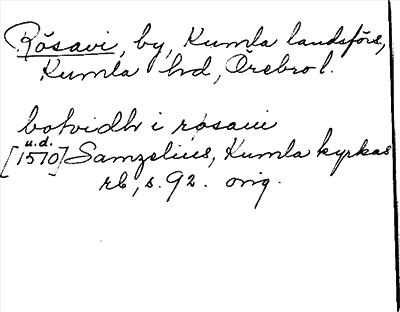 Rösavi, by, Kumla landsförs,
Kumla hd, Örebro l.
botvidh i røsaui
u.d.
[1570] Samzelius, Kumla kyrkas
rb, s. 92. orig.